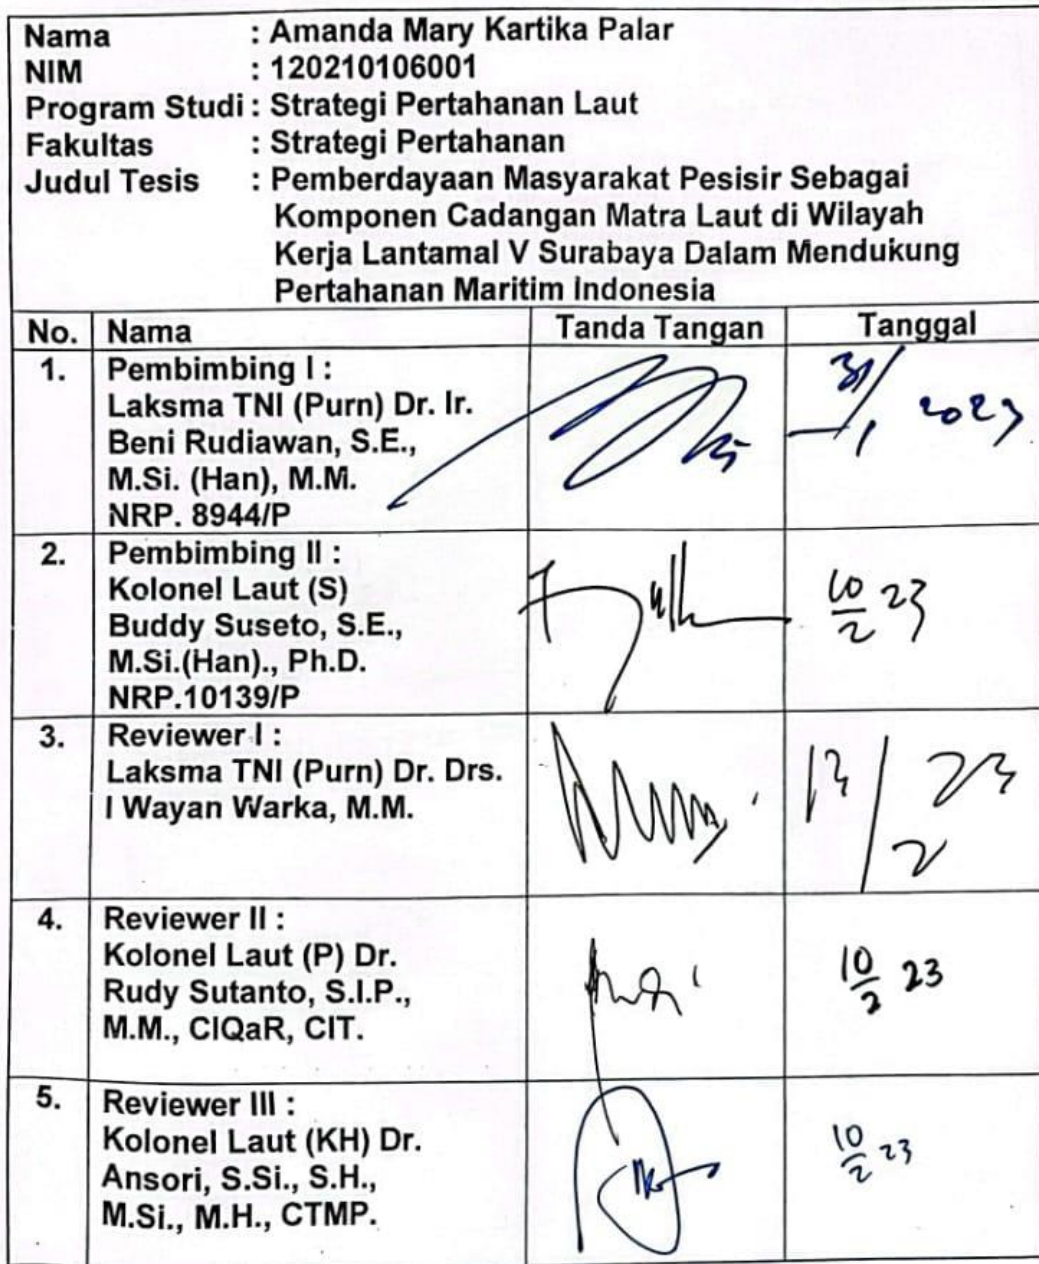 Nama : Amanda Mary Kartika Palar
NIM : 120210106001
Program Studi : Strategi Pertahanan Laut
Fakultas : Strategi Pertahanan
Judul Tesis : Pemberdayaan Masyarakat Pesisir Sebagai
Komponen Cadangan Matra Laut di Wilayah
Kerja Lantamal V Surabaya Dalam Mendukung
Pertahanan Maritim Indonesia
No. Nama Tanda Tangan Tanggal
1. Pembimbing I :
Laksma TNI (Purn) Dr. Ir.
Beni Rudiawan, S.E.,
M.Si. (Han), M.M.
NRP. 8944/P
31/1 2023
2. Pembimbing II :
Kolonel Laut (S)
Buddy Suseto, S.E.,
M.Si.(Han)., Ph.D.
NRP.10139/P
10/2 23
3. Reviewer I :
Laksma TNI (Purn) Dr. Drs.
I Wayan Warka, M.M.
13/2 23
4. Reviewer II :
Kolonel Laut (P) Dr.
Rudy Sutanto, S.I.P.,
M.M., CIQaR, CIT.
10/2 23
5. Reviewer III :
Kolonel Laut (KH) Dr.
Ansori, S.Si., S.H.,
M.Si., M.H., CTMP.
10/2 23